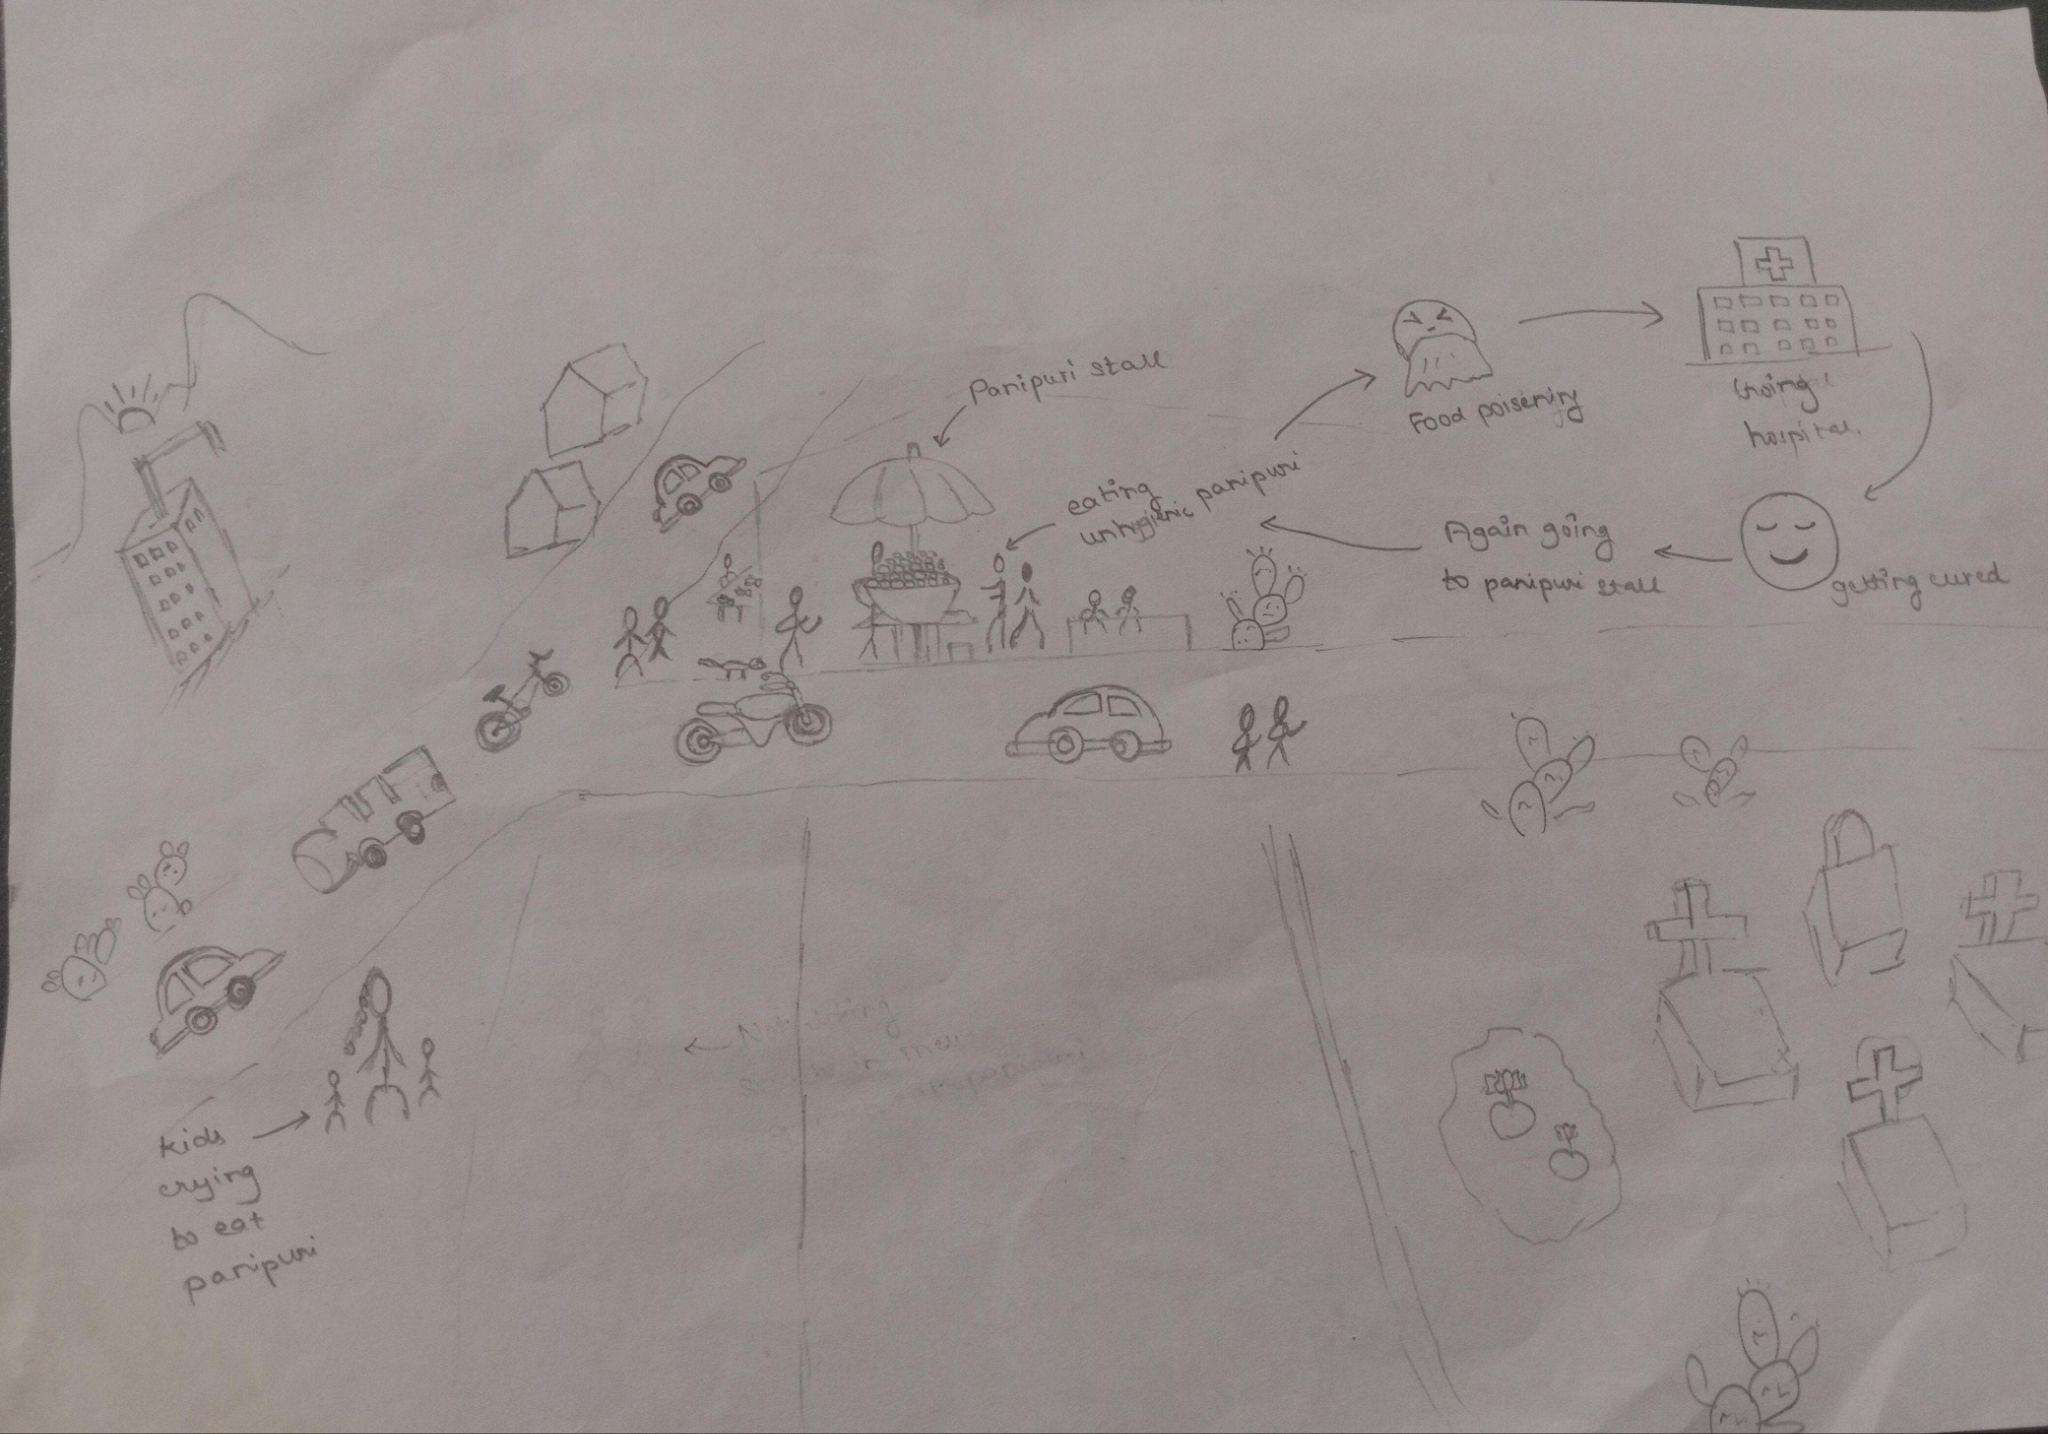 Panipuri stall
eating
unhygienic panipuri
Food poisening
Going
hospital.
getting cured
Again going
to panipuri stall
kids
crying
to eat
panipuri